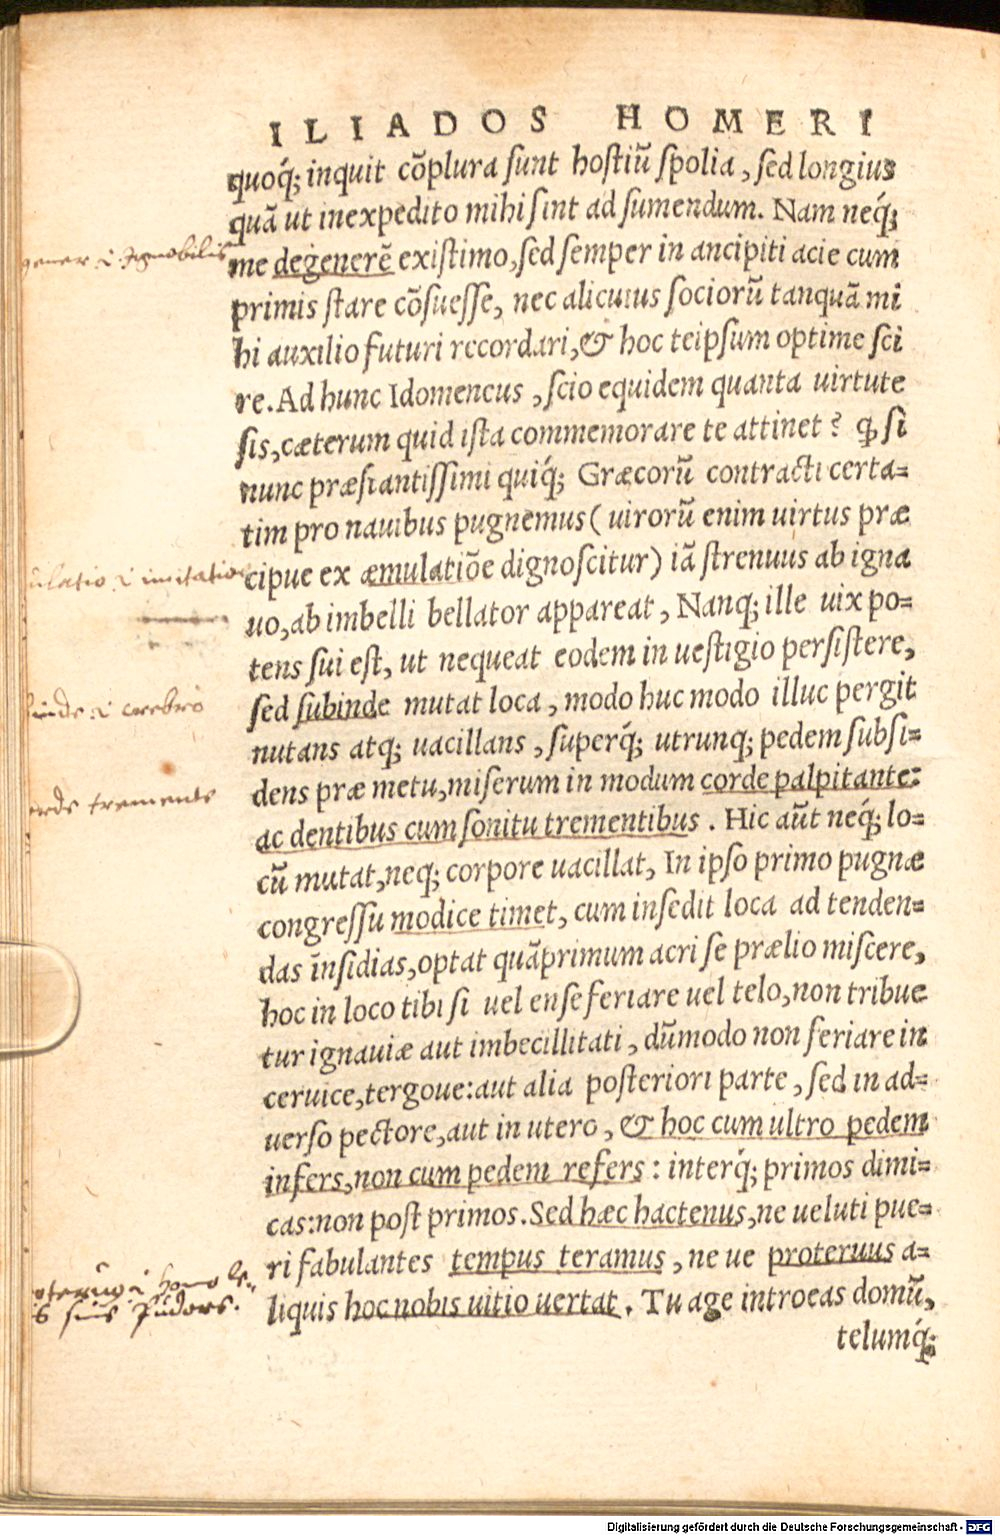 ILIADOS HOMERI
quoq́; inquit cōplura sunt hostiū spolia, sed longius
quā ut inexpedito mihi sint ad sumendum. Nam neq́;
gener .i. Ignobilis
me degenerē existimo, sed semper in ancipiti acie cum
primis stare cōsuesse, nec alicuius sociorū tanquā mi
hi auxilio futuri recordari, & hoc teipsum optime sci
re. Ad hunc Idomeneus, scio equidem quanta uirtute
sis, cæterum quid ista commemorare te attinet? ꝙ si
nunc præstantissimi quiq́; Græcorū contracti certa=
tim pro nauibus pugnemus (uirorū enim uirtus præ
ulatio .i. imitatio
cipue ex æmulatiōe dignoscitur) iā strenuus ab igna
uo, ab imbelli bellator appareat, Nanq; ille uix po=
tens sui est, ut nequeat eodem in uestigio persistere,
sed subinde mutat loca, modo huc modo illuc pergit
binde .i. crebro
nutans atq; uacillans, superq́; utrunq; pedem subsi=
dens præ metu, miserum in modum corde palpitante:
orde tremente
ac dentibus cum sonitu trementibus. Hic aūt neq́; lo=
cū mutat, neq; corpore uacillat, In ipso primo pugnæ
congressu modice timet, cum insedit loca ad tenden=
das īnsidias, optat quāprimum acri se prælio miscere,
hoc in loco tibi si uel ense feriare uel telo, non tribue
tur ignauiæ aut imbecillitati, dūmodo non feriare in
ceruice, tergoue: aut alia posteriori parte, sed in ad=
uerso pectore, aut in utero, & hoc cum ultro pedem
infers, non cum pedem refers: interq́; primos dimi=
cas: non post primos. Sed hæc hactenus, ne ueluti pue=
ri fabulantes tempus teramus, ne ue proteruus a=
oteruus .i. homo
sine Pudore.
liquis hoc nobis uitio uertat. Tu age introeas domū,
telumq́;
Digitalisierung gefördert durch die Deutsche Forschungsgemeinschaft - DFG